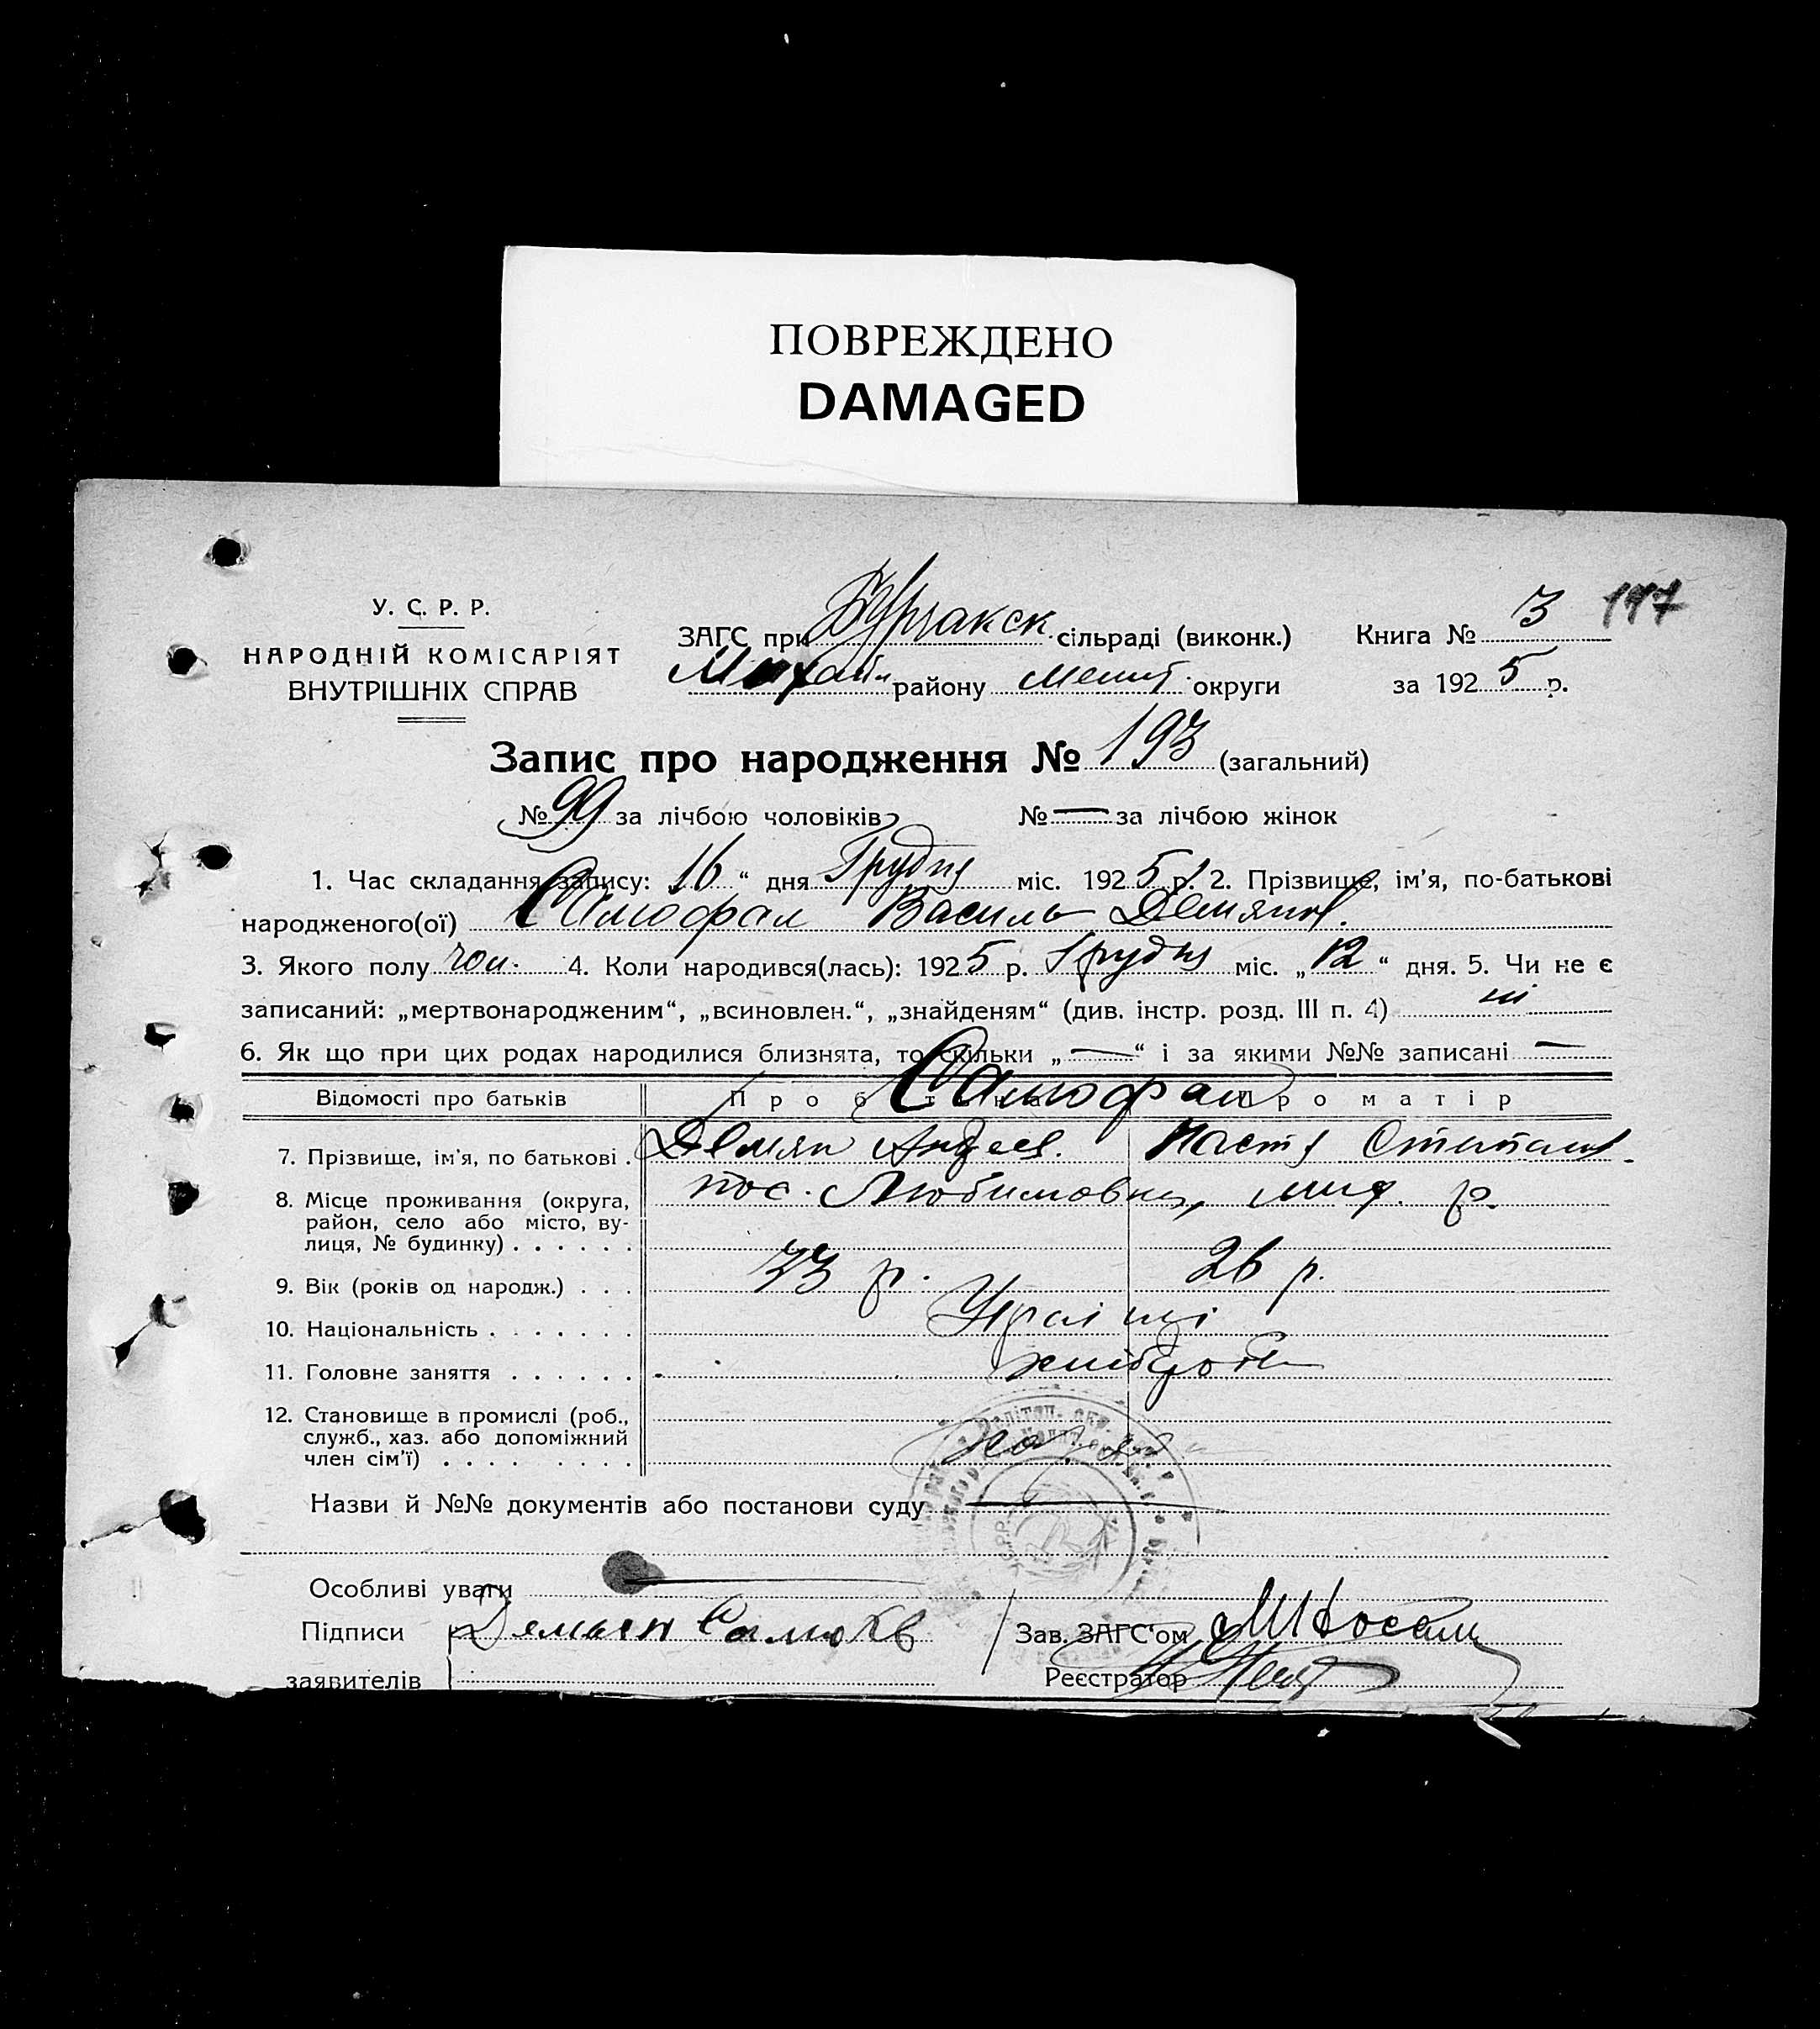 ПОВРЕЖДЕНО
DAMAGED
У. С. Р. Р.
НАРОДНІЙ КОМІСАРІЯТ
ВНУТРІШНІХ СПРАВ
ЗАГС при Бурчакск. сільраді (виконк.)
Михайл. району Меліт. округи
Книга № 3
за 1925 р.
Запис про народження № 193 (загальний)
№ 99 за лічбою чоловіків № — за лічбою жінок
1. Час складання запису: 16 “ дня Грудня міс. 1925 р. 2. Прізвище, ім’я, по-батькові
народженого(ої) Самофал Василь Демянов.
3. Якого полу чол. 4. Коли народився(лась): 1925 р. Грудня міс. „ 12 “ дня. 5. Чи не є
записаний: „мертвонародженим“, „всиновлен.“, „знайденям“ (див. інстр. розд. III п. 4) ні
6. Як що при цих родах народилися близнята, то скільки „ — “ і за якими №№ записані —
Відомості про батьків Про батька Про матір
Самофал
7. Прізвище, ім’я, по батькові . Демян Андреев. Настя Степанов.
8. Місце проживання (округа, район, село або місто, вулиця, № будинку) . . . . . . пос. Любимовка, мих. р.
9. Вік (років од народж.) . . . 33 р. 26 р.
10. Національність . . . . . . . Украінці
11. Головне заняття . . . . . . хлібороб
12. Становище в промислі (роб.,
служб., хаз. або допоміжний
член сім’ї) . . . . . . . . .
Назви й №№ документів або постанови суду —
Особливі уваги —
Підписи Демьян
заявителів
Зав. ЗАГС’ом
Реєстратор